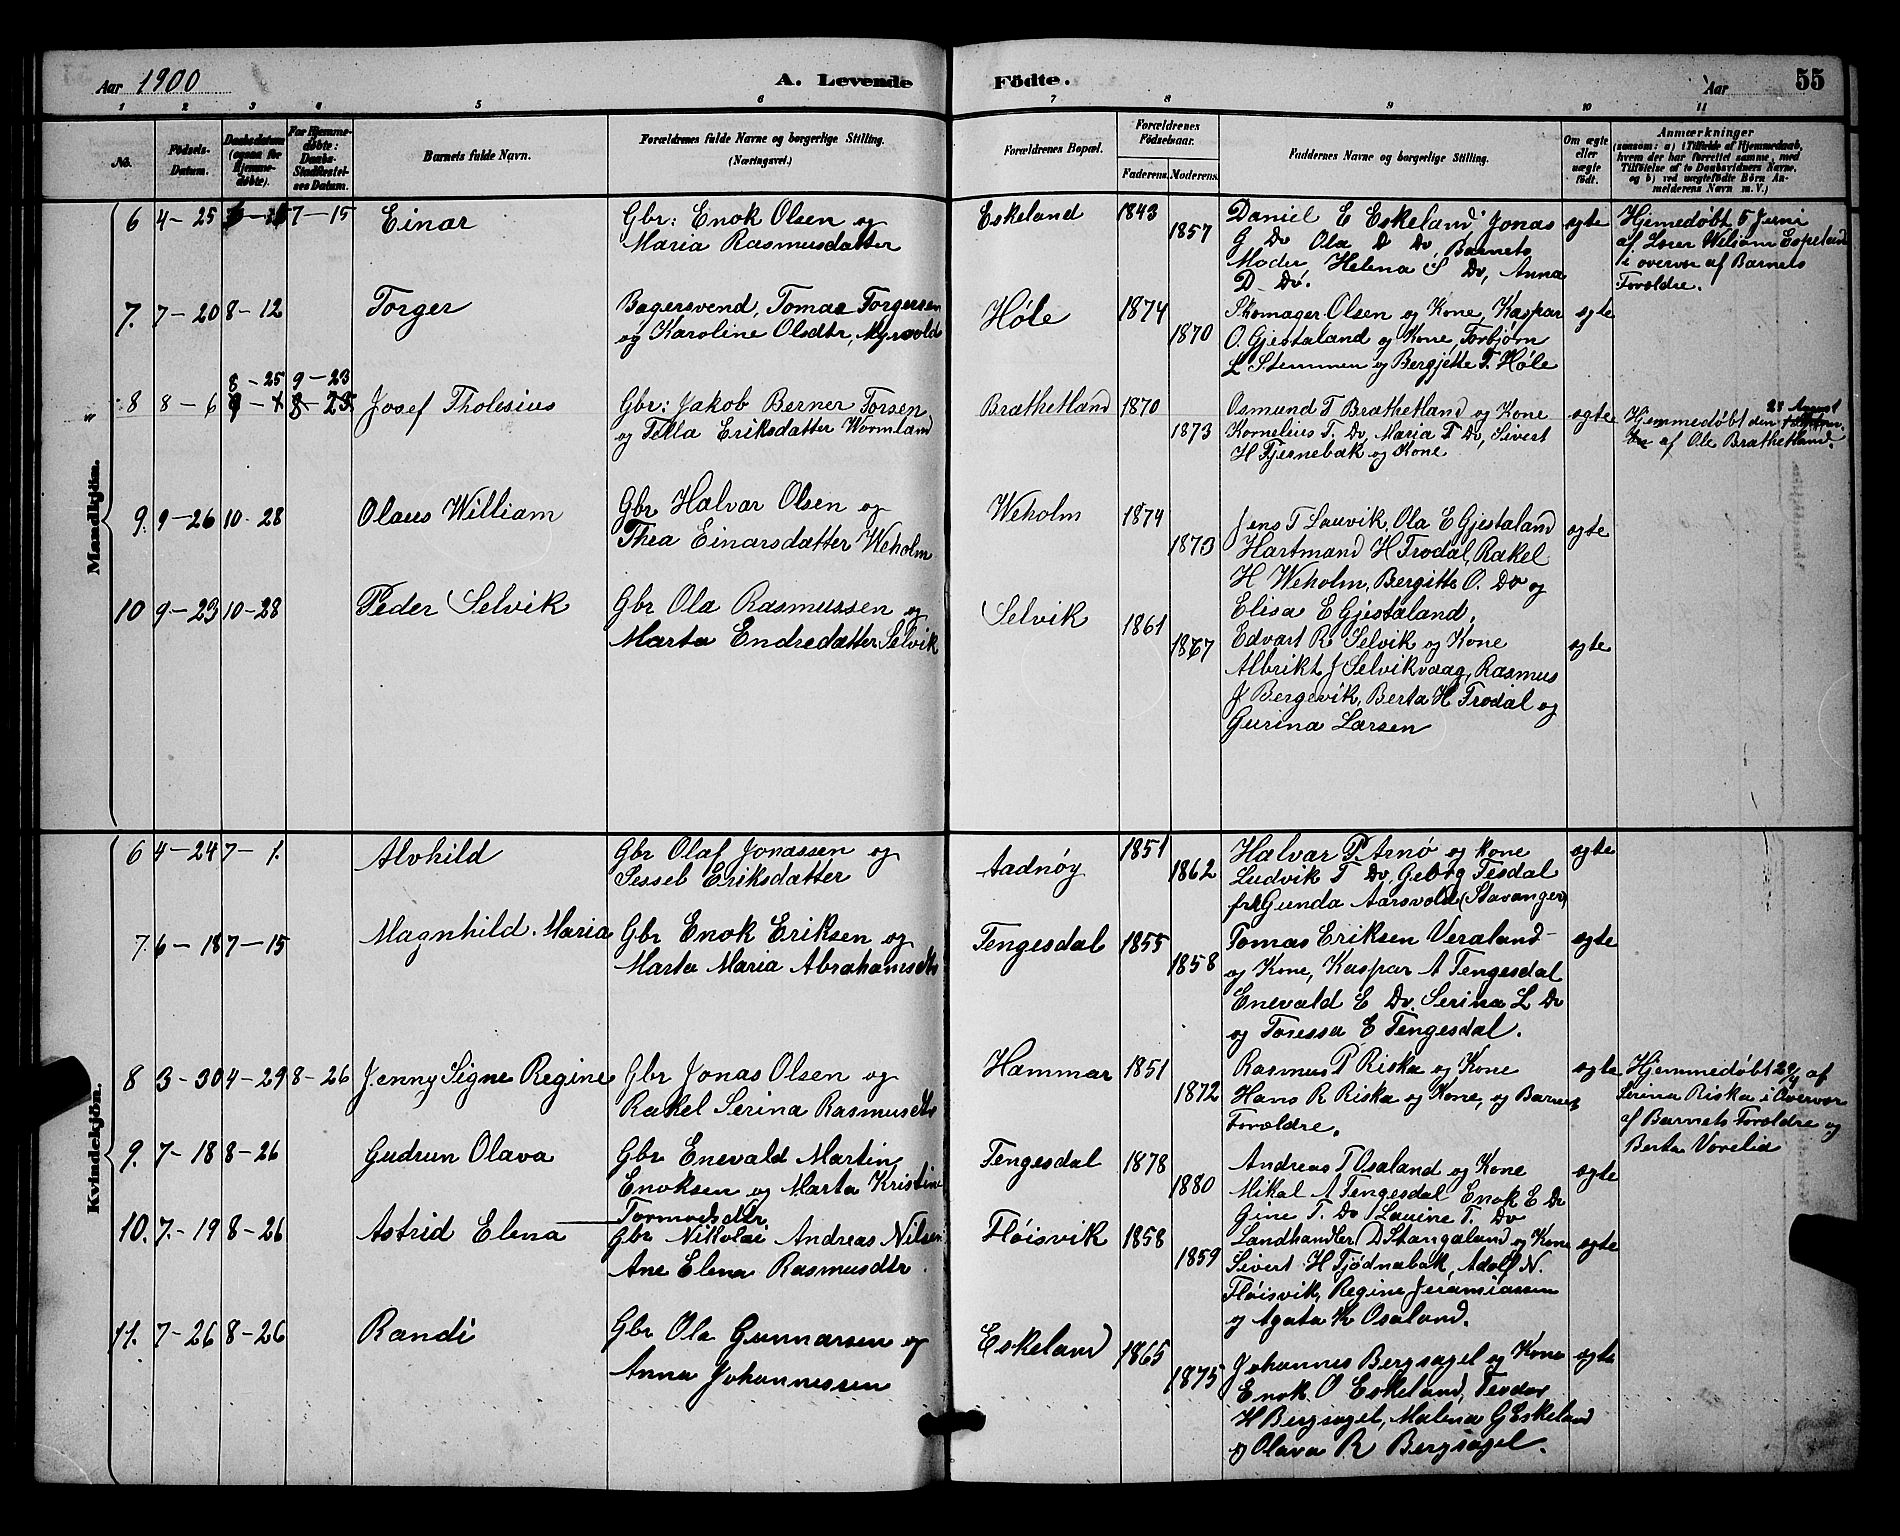 Aar 1900
A. Levende Födte.
Aar
55
1 2 3 4 5 6 7 8 9 10 11
No.
Födsels-
Datum.
Daabsdatum
(ogsaa for
Hjemme-
döbte).
For Hjemme-
döbte:
Daabs-
Stadfæstel-
ses Datum.
Barnets fulde Navn.
Forældrenes fulde Navne og borgerlige Stilling.
(Næringsvei.)
Forældrenes Bopæl.
Forældrenes
Födselsaar.
Faderens. Moderens.
Faddernes Navne og borgerlige Stilling.
Om ægte
eller
uægte
födt.
Anmærkninger
(saasom: a) i Tilfælde af Hjemmedaab,
hvem der har forrettet samme, med
Tilföielse af to Daabsvidners Navne,
og b) ved uægtefödte Börn An-
melderens Navn m. V.)
Mandkjön.
6 4-25 7-15 Einar
Gbr: Enok Olsen og
Maria Rasmusdatter
Eskeland 1843
1857
Daniel E Eskeland, Jonas
G Do Ola D Do, Barnets
Moder, Helena S Do, Anna
D Do.
ægte
Hjemedøbt, 5 Juni
af Lærer Espeland
i overvær af Barnets
Forældre.
7. 7-20 8-12 Torger
Bagersvend, Tomas Torgersen
og Karoline Olsdtr, Myrvold
Høle 1874
1870
Skomager Olsen og Kone, Kaspar
O. Gjestaland og Kone, Torbjørn
L Stemmen og Bergjitte T. Høle
ægte
8-25 9-23
" 8 8-6 Josef Tholesius
Gbr: Jakob Berner Torsen
og Tella Eriksdatter Wormland
Bræthetland 1870
1873
Osmund T Bræthetland og Kone
Kornelius T. Do, Maria T Do, Sivert
H Tjernebæk og Kone
ægte
Hjemmedøbt den
af Ole Bræthetland.
9. 9-26 10-28 Olaus William
Gbr Halvar Olsen og
Thea Einarsdatter Weholm
Weholm 1874
1873
Jens T Lauvik, Ola E Gjestaland
Hartmand H Trodal, Rakel
H Weholm, Bergitte O. Do og
Elisa E Gjestaland.
ægte
10 9-23 10-28 Peder Selvik
Gbr Ola Rasmussen og
Marta Endredatter Selvik
Selvik 1861
1867
Edvart R. Selvik og Kone
Albrikt J Selvikvaag, Rasmus
J Bergevik, Berta H Trodal og
Gurina Larsen
ægte
Kvindekjön.
6 4-24 7-1. Alvhild
Gbr Olaf Jonassen og
Sessel Eriksdatter
Aadnøy 1851
1862
Halvar P. Arnø og kone
Ludvik T Do, Georg Tesdal
frk Gunda Aarsvold (Stavanger)
ægte
7. 6-18 7-15 Magnhild. Maria
Gbr Enok Eriksen og
Marta Maria Abrahamsdtr
Tengesdal 1855
1858
Tomas Eriksen Veraland
og Kone, Kaspar A Tengesdal
Enevald E Do, Serina L Do
og Toressa E Tengesdal.
ægte
8 3-30 4-29 8-26 Jenny Signe Regine
Gbr Jonas Olsen og
Rakel Serina Rasmusdtr
Hammar 1851
1872
Rasmus P Riska og Kone
Hans R Riska og Kone, og Barnets
Forældre.
ægte
Hjemmedøbt 29/4 af
Serina Riska i Overvær
af Barnets Forældre og
Berta Vorelia
9. 7-18 8-26 Gudrun Olava
Gbr Enevald Martin
Enoksen og Marta Kristine
Tormodsdtr
Tengesdal 1878
1880
Andreas T Osaland og Kone
Mikal A Tengesdal Enok E Do
Gine T. Do, Lauine T. Do
ægte
10. 7-19 8-26 Astrid Elena
Gbr Nikolai Andreas Nilsen
Ane Elena Rasmusdtr.
Fløisvik 1858
1859
Landhandler D Stangaland og Kone
Sivert H Tjødnabæk, Adolf N.
Fløisvik, Regine Jeramiassen
og Agata K Osaland.
ægte
11. 7-26 8-26 Randi
Gbr Ola Gunnarsen og
Anna Johannessen
Eskeland 1865
1875
Johannes Bergsagel og Kone
Enok O Eskeland, Teodor
H Bergsagel, Malena G Eskeland
og Olava R Bergsagel.
ægte